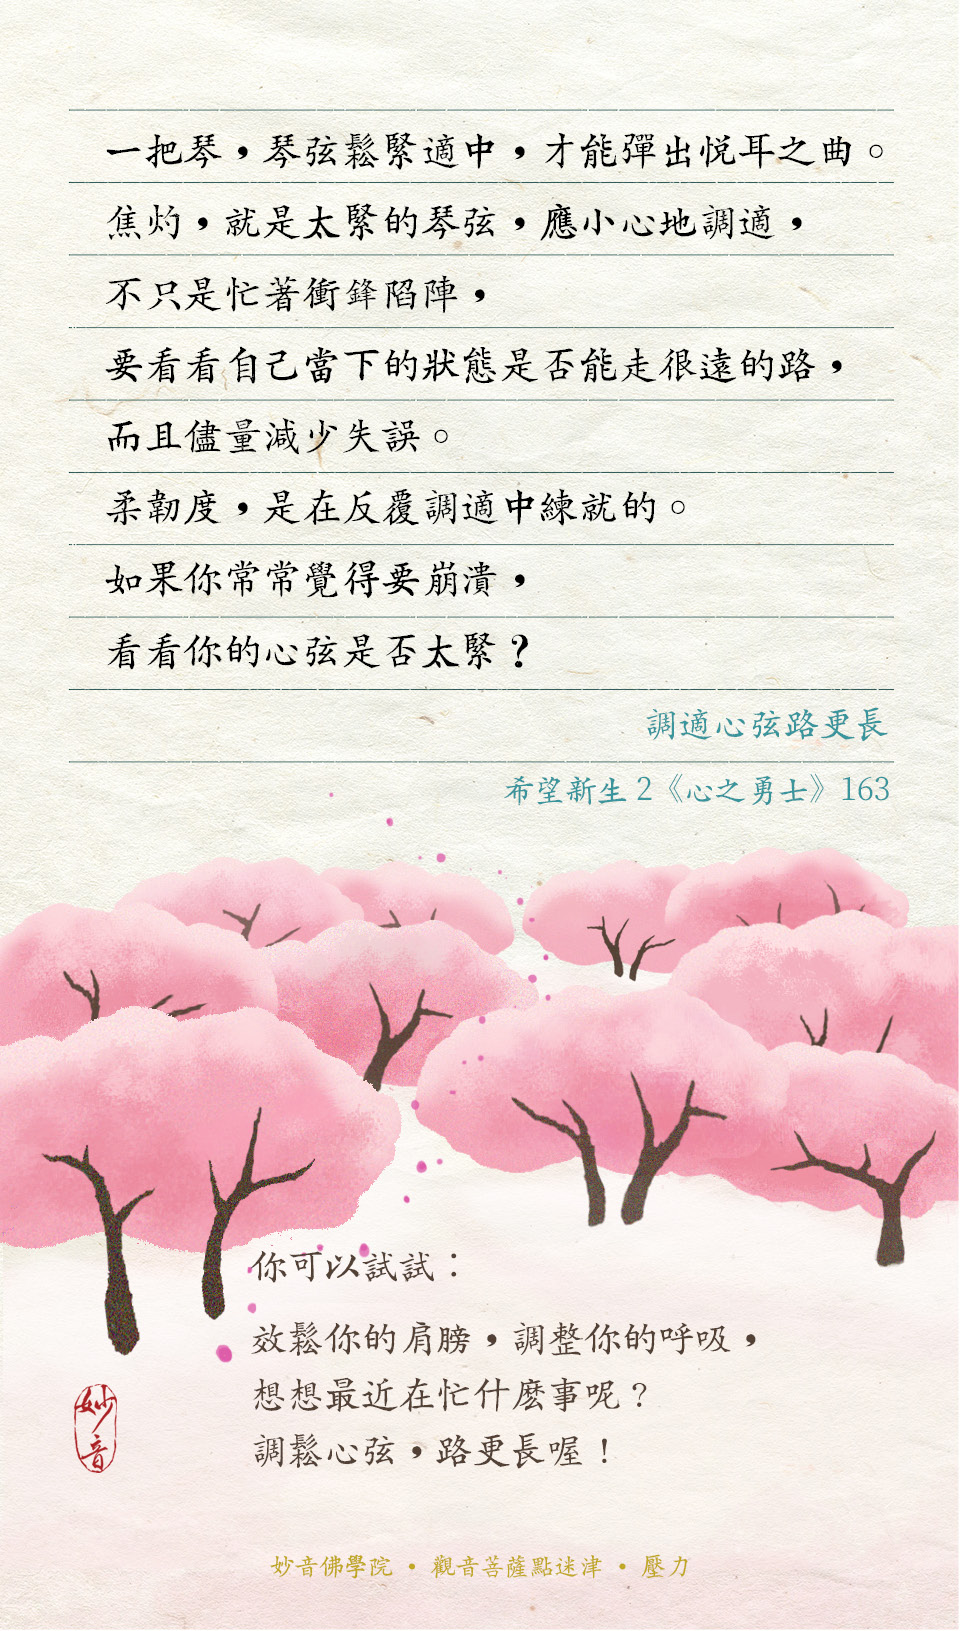 一把琴，琴弦鬆緊適中，才能彈出悅耳之曲。
焦灼，就是太緊的琴弦，應小心地調適，
不只是忙著衝鋒陷陣，
要看看自己當下的狀態是否能走很遠的路，
而且儘量減少失誤。
柔韌度，是在反覆調適中練就的。
如果你常常覺得要崩潰，
看看你的心弦是否太緊？
調適心弦路更長
希望新生 2《心之勇士》163
你可以試試：
效鬆你的肩膀，調整你的呼吸，
想想最近在忙什麼事呢？
調鬆心弦，路更長喔！
妙音
妙音佛學院 • 觀音菩薩點迷津 • 壓力